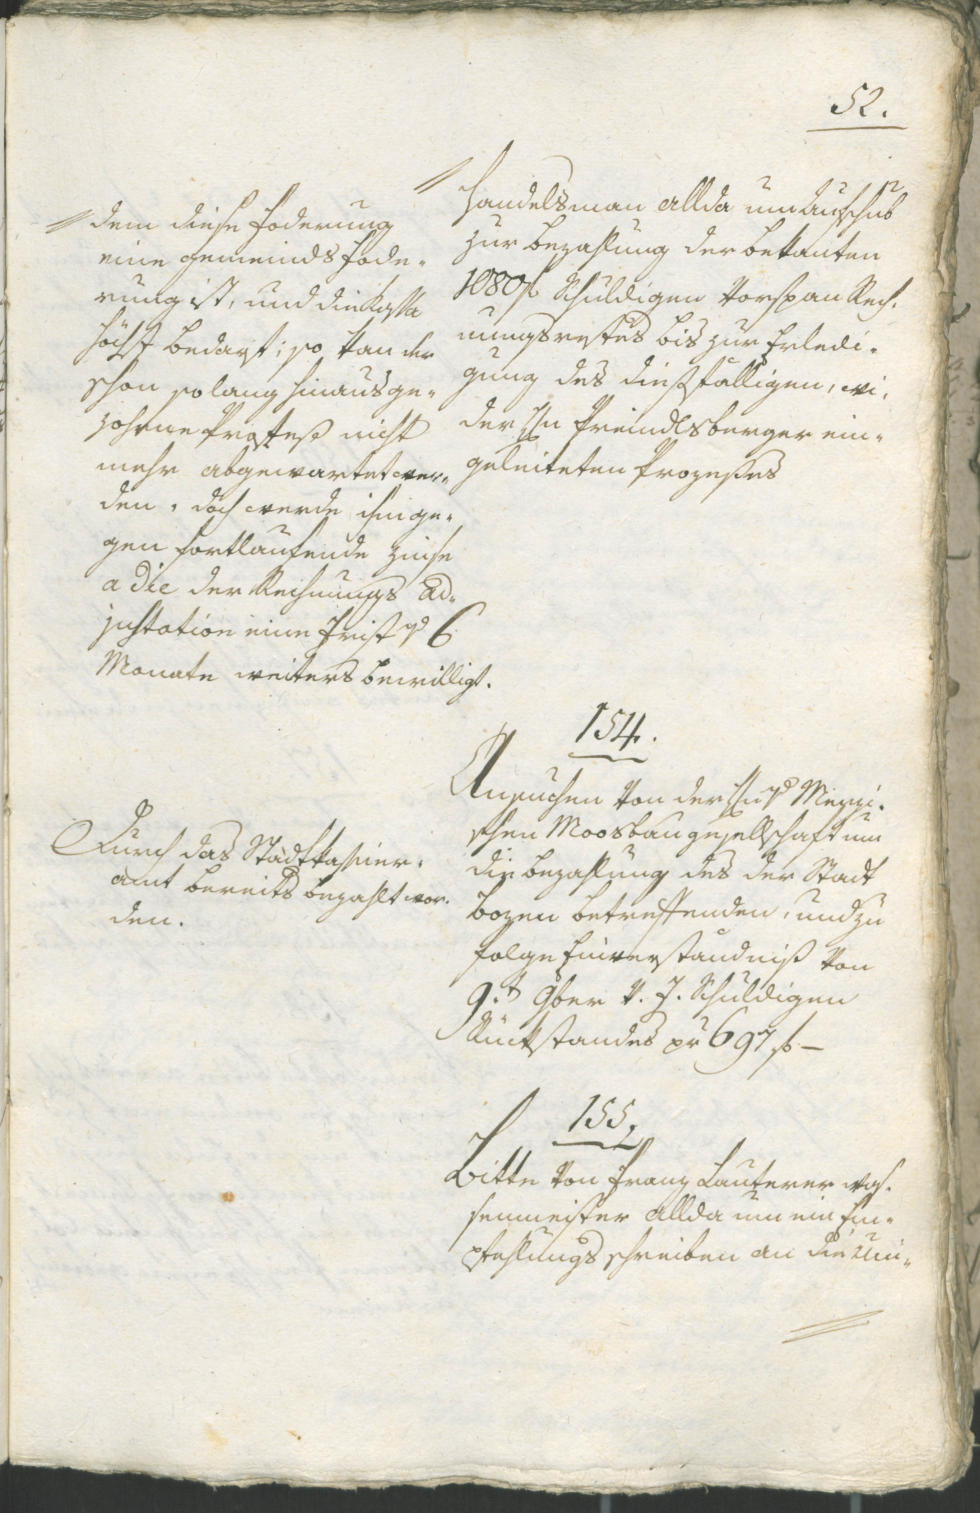 52.
dem diese Foderung
eine gemeinds Fode-
rung ist, und die Kassa
höchst bedarf; so kan der
schon so lang hinausge-
zohene Prozeß nicht
mehr abgewartet wer-
den. doch werde ihm ge-
gen fortlaufende Zinse
a die der Rechnungs Ad-
justation eine Frist v 6
Monate weiters bewilligt.
Handelsman allda um Aufschub
zur bezahlung der bekanten
1080 f schuldigen Vorspan Rech-
nungsrestes bis zur Erledi-
gung des dießfälligen, wi-
der Hn Preindlsberger ein-
geleiteten Prozeßes
154.
Ansuchen von der Hn v
schen Moosbaugesellschaft um
die bezahlung des der Stadt
Bozen betreffenden, und zu
folge Einverständniß von
9.t 9ber v. J. schuldigen
Rückstandes pr 697 f –
Durch das Stadtkassier-
amt bereits bezahlt wor-
den.
155.
Bitte von Franz Lauterer was-
senmeister allda um ein Em-
pfehlungsschreiben an die Uni-